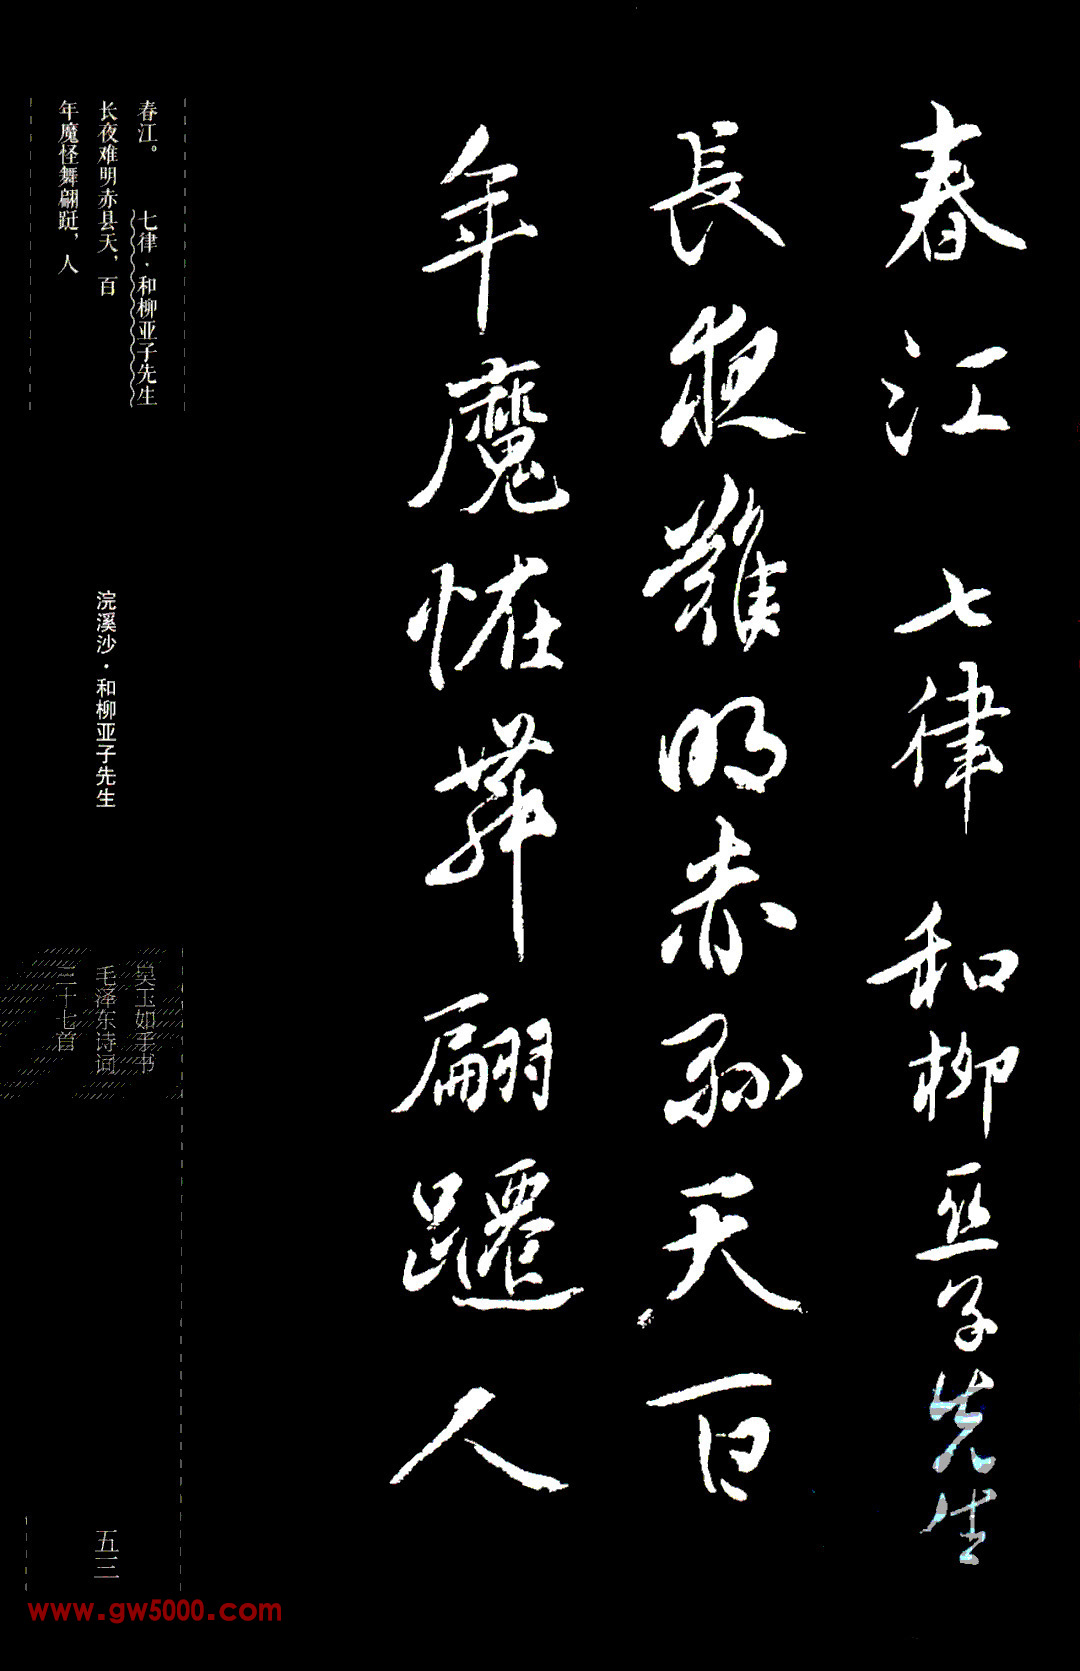 春江 七律 和柳亞子先生
長夜難明赤縣天百
年魔怪舞翩躚人
春江。 七律·和柳亚子先生
长夜难明赤县天，百
年魔怪舞翩跹，人
浣溪沙·和柳亚子先生
吴玉如手书
毛泽东诗词
三十七首
五三
www.gw5000.com